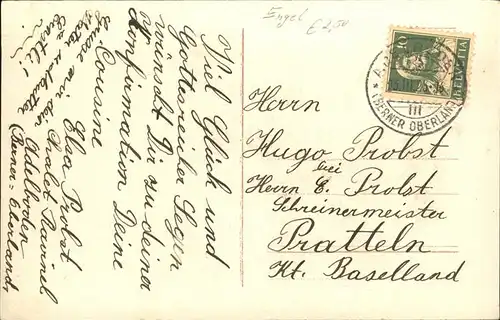 Engel
£ 2,50
Viel Glück und
Gottreicher Segen
wünscht Dir zu deiner
Konfirmation Deine
Cousine
Elsa Probst
Chalet
Adelboden
(Berner-Oberland)
Grüsse mir dein
Vater u. Mutter
10
HELVETIA
(BERNER OBERLAND)
III
Herrn
Hugo Probst
bei
Herrn E. Probst
Schreinermeister
Pratteln
Kt. Baselland